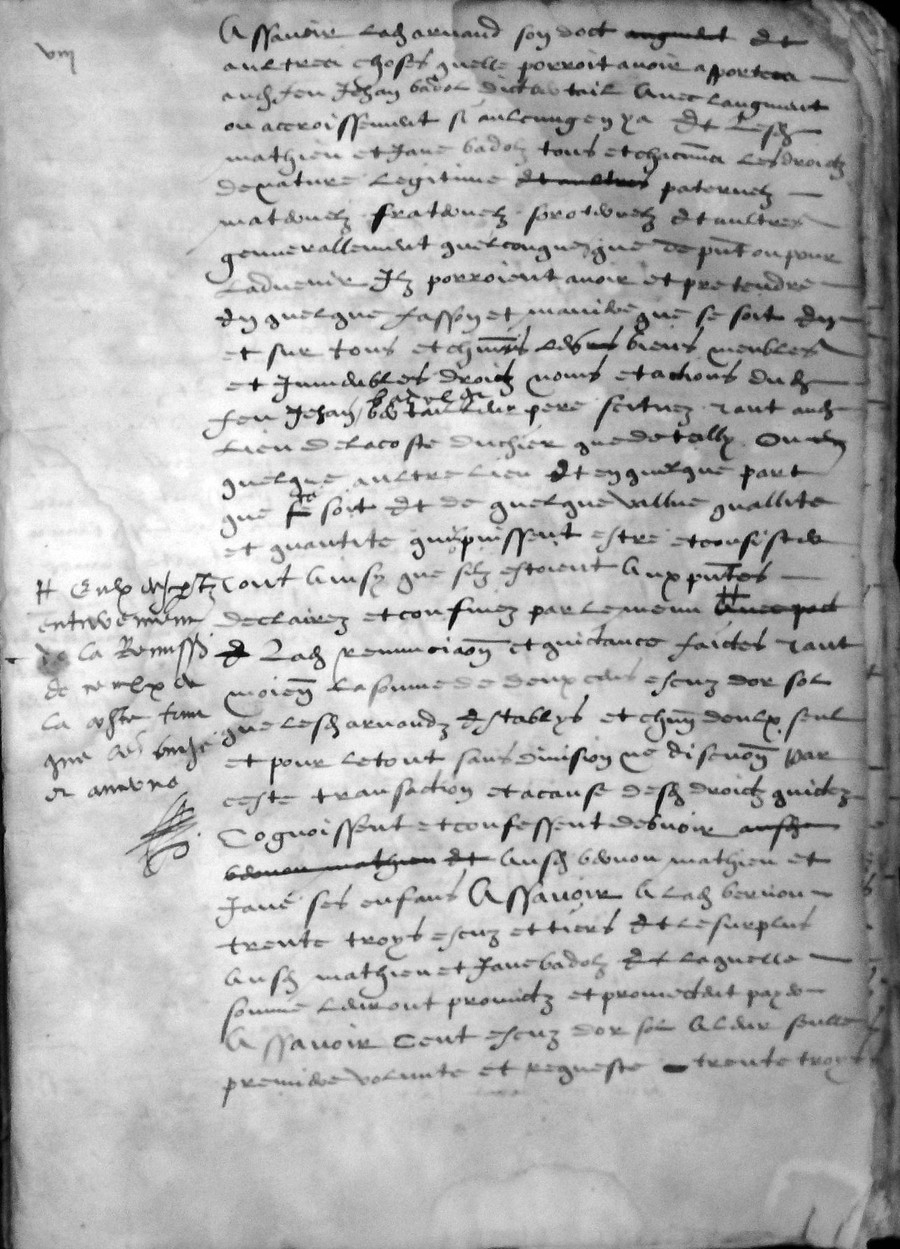 viii
Assavoir lad arnaud son doct augment et
aultres choses quelle porroit avoir apportees
aud feu Jehan badol dict tail avec laugment
ou accroissement si aulcung en y a Et lesd
mathieu et Jane badolz tous et chacuns les droictz
de nature legitime et aultres paternelz
maternelz fraternelz soroternelz et aultres
generallement quelconques que de pnt ou pour
ladvenir Ilz porroient avoir et pretendre
en quelque fasson et maniere que se soit en
et sur tous et chuns les biens meubles
et Immeubles droictz noms et actions dud
feu Jehan badol leur pere scituez tant aud
lieu de lacoste duchier que de ou en
quelque aultre lieu et en quelque part
que ce soit et de quelque vallue quallite
et quantite quilz puissent estre et consister
tout ainsy que silz estoient aux pntes
declairez et confinez par le menu avec pact
Et lad renunciaon et quictance faictes tant
moien la somme de deux cens escuz dor sol
que lesd arnaudz establys et chun deulx seul
et pour le tout sans division ne discuon par
ceste transaction et a cause desd droictz quictez
Cognoissent et confessent debvoir ausd
bernon mathieu et ausd bernon mathieu et
Jane ses enfans Assavoir a lad bernon
trente troys escuz et tiers et le surplus
ausd mathieu et Jane badolz Et laquelle
somme leur ont promictz et promectent payer
Assavoir Cent escuz dor sol a leur seulle
premiere volunte et requeste trente troys
entrevenir
de la Remissi
de ceulx de
la
que
et